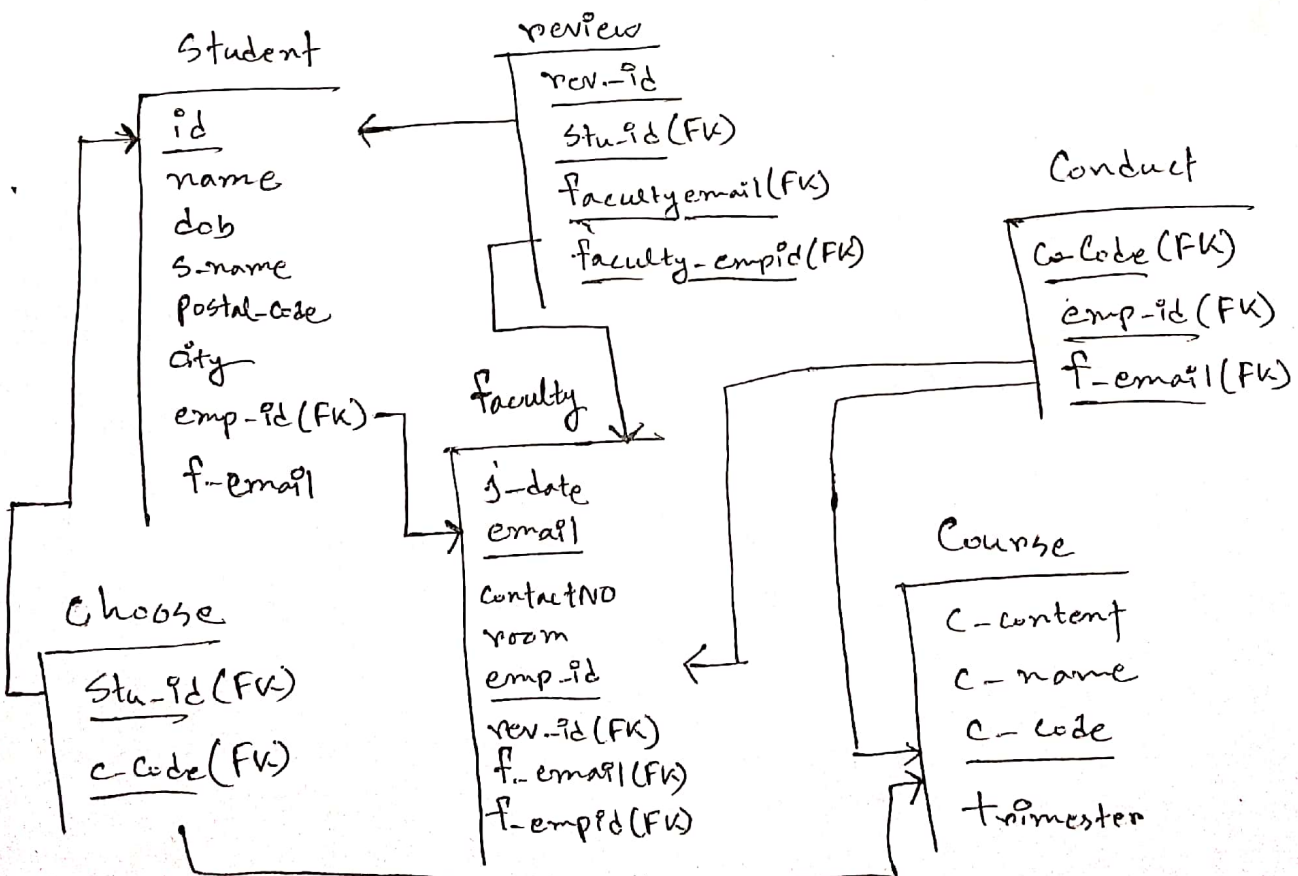 Student
id
name
dob
s-name
postal-code
city
emp-id (FK)
f-email
review
rev.-id
stu-id (FK)
facultyemail (FK)
faculty-empid (FK)
Conduct
Co-Code (FK)
emp-id (FK)
f-email (FK)
faculty
j-date
email
contactNO
room
emp-id
rev.-id (FK)
f-email (FK)
f-empid (FK)
Choose
Stu-id (FK)
c-Code (FK)
Course
C-content
C-name
C-code
trimester